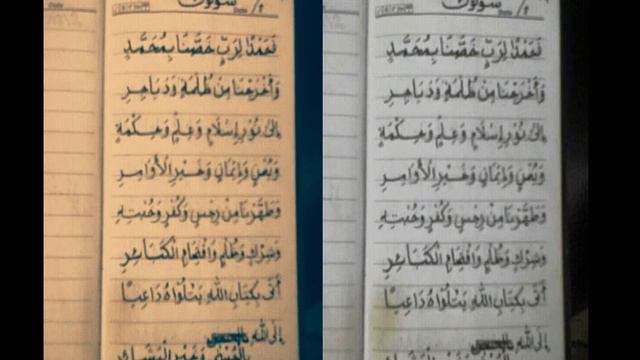 سؤلوك
نَحَمْدًا لِرَبٍّ خَصَّنَا بِمُحَمَّدٍ
وَأَخْرَجَنَا مِنْ ظُلْمَةٍ وَدَيَاجِرِ
إِلَى نُورِ إِسْلَامٍ وَعِلْمٍ وَحِكْمَةٍ
وَيُمْنٍ وَإِيمَانٍ وَخَيْرِ الْأَوَامِرِ
وَطَهَّرَنَا مِنْ رِجْسٍ وَكُفْرٍ وَخُبْثِهِ
وَشِرْكٍ وَظُلْمٍ وَاقْتِحَامِ الْكَبَائِرِ
أَتَى بِكِتَابِ اللهِ يَتْلُوهُ دَاعِيًا
إِلَى اللهِ
سؤلوك
نَحَمْدًا لِرَبٍّ خَصَّنَا بِمُحَمَّدٍ
وَأَخْرَجَنَا مِنْ ظُلْمَةٍ وَدَيَاجِرِ
إِلَى نُورِ إِسْلَامٍ وَعِلْمٍ وَحِكْمَةٍ
وَيُمْنٍ وَإِيمَانٍ وَخَيْرِ الْأَوَامِرِ
وَطَهَّرَنَا مِنْ رِجْسٍ وَكُفْرٍ وَخُبْثِهِ
وَشِرْكٍ وَظُلْمٍ وَاقْتِحَامِ الْكَبَائِرِ
أَتَى بِكِتَابِ اللهِ يَتْلُوهُ دَاعِيًا
إِلَى اللهِ